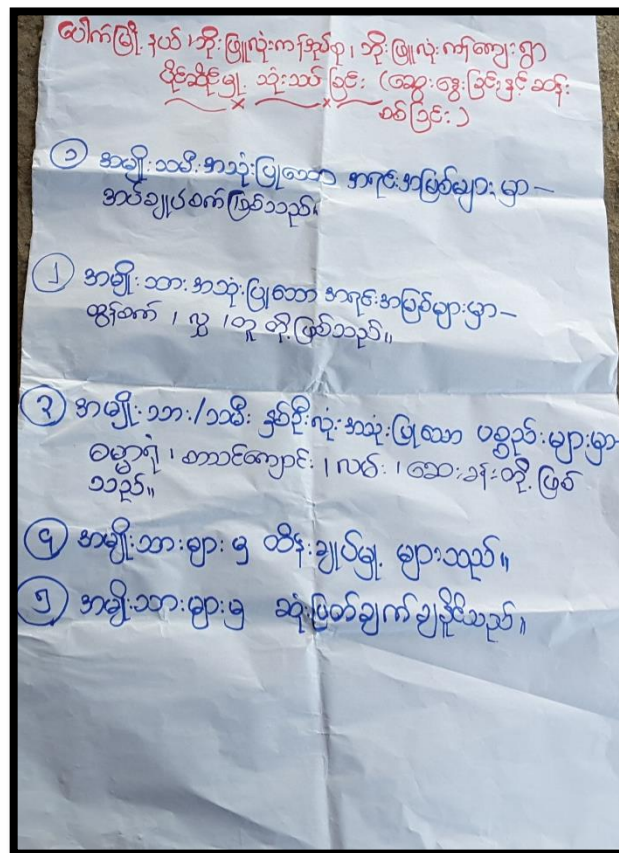 ပေါက်မြို့နယ်၊ ဘိုးဖြူလုံးကန်အုပ်စု၊ ဘိုးဖြူလုံးကန်ကျေးရွာ
ပိုင်ဆိုင်မှု သုံးသပ်ခြင်း (ဆွေးနွေးခြင်းနှင့် ဆန်း
စစ်ခြင်း)
၁ အမျိုးသမီးအသုံးပြုသော အရင်းအမြစ်များမှာ -
အပ်ချုပ်စက်ဖြစ်သည်။
၂ အမျိုးသားအသုံးပြုသော အရင်းအမြစ်များမှာ -
ထွန်စက် ၊ လွှ ၊ တူ တို့ဖြစ်သည်။
၃ အမျိုးသား/သမီး နှစ်ဦးလုံးအသုံးပြုသော ပစ္စည်းများမှာ-
ဓမ္မာရုံ ၊ စာသင်ကျောင်း ၊ လမ်း ၊ ဆေးခန်းတို့ဖြစ်
သည်။
၄ အမျိုးသားများမှ ထိန်းချုပ်မှု များသည်။
၅ အမျိုးသားများမှ ဆုံးဖြတ်ချက်ချနိုင်သည်။